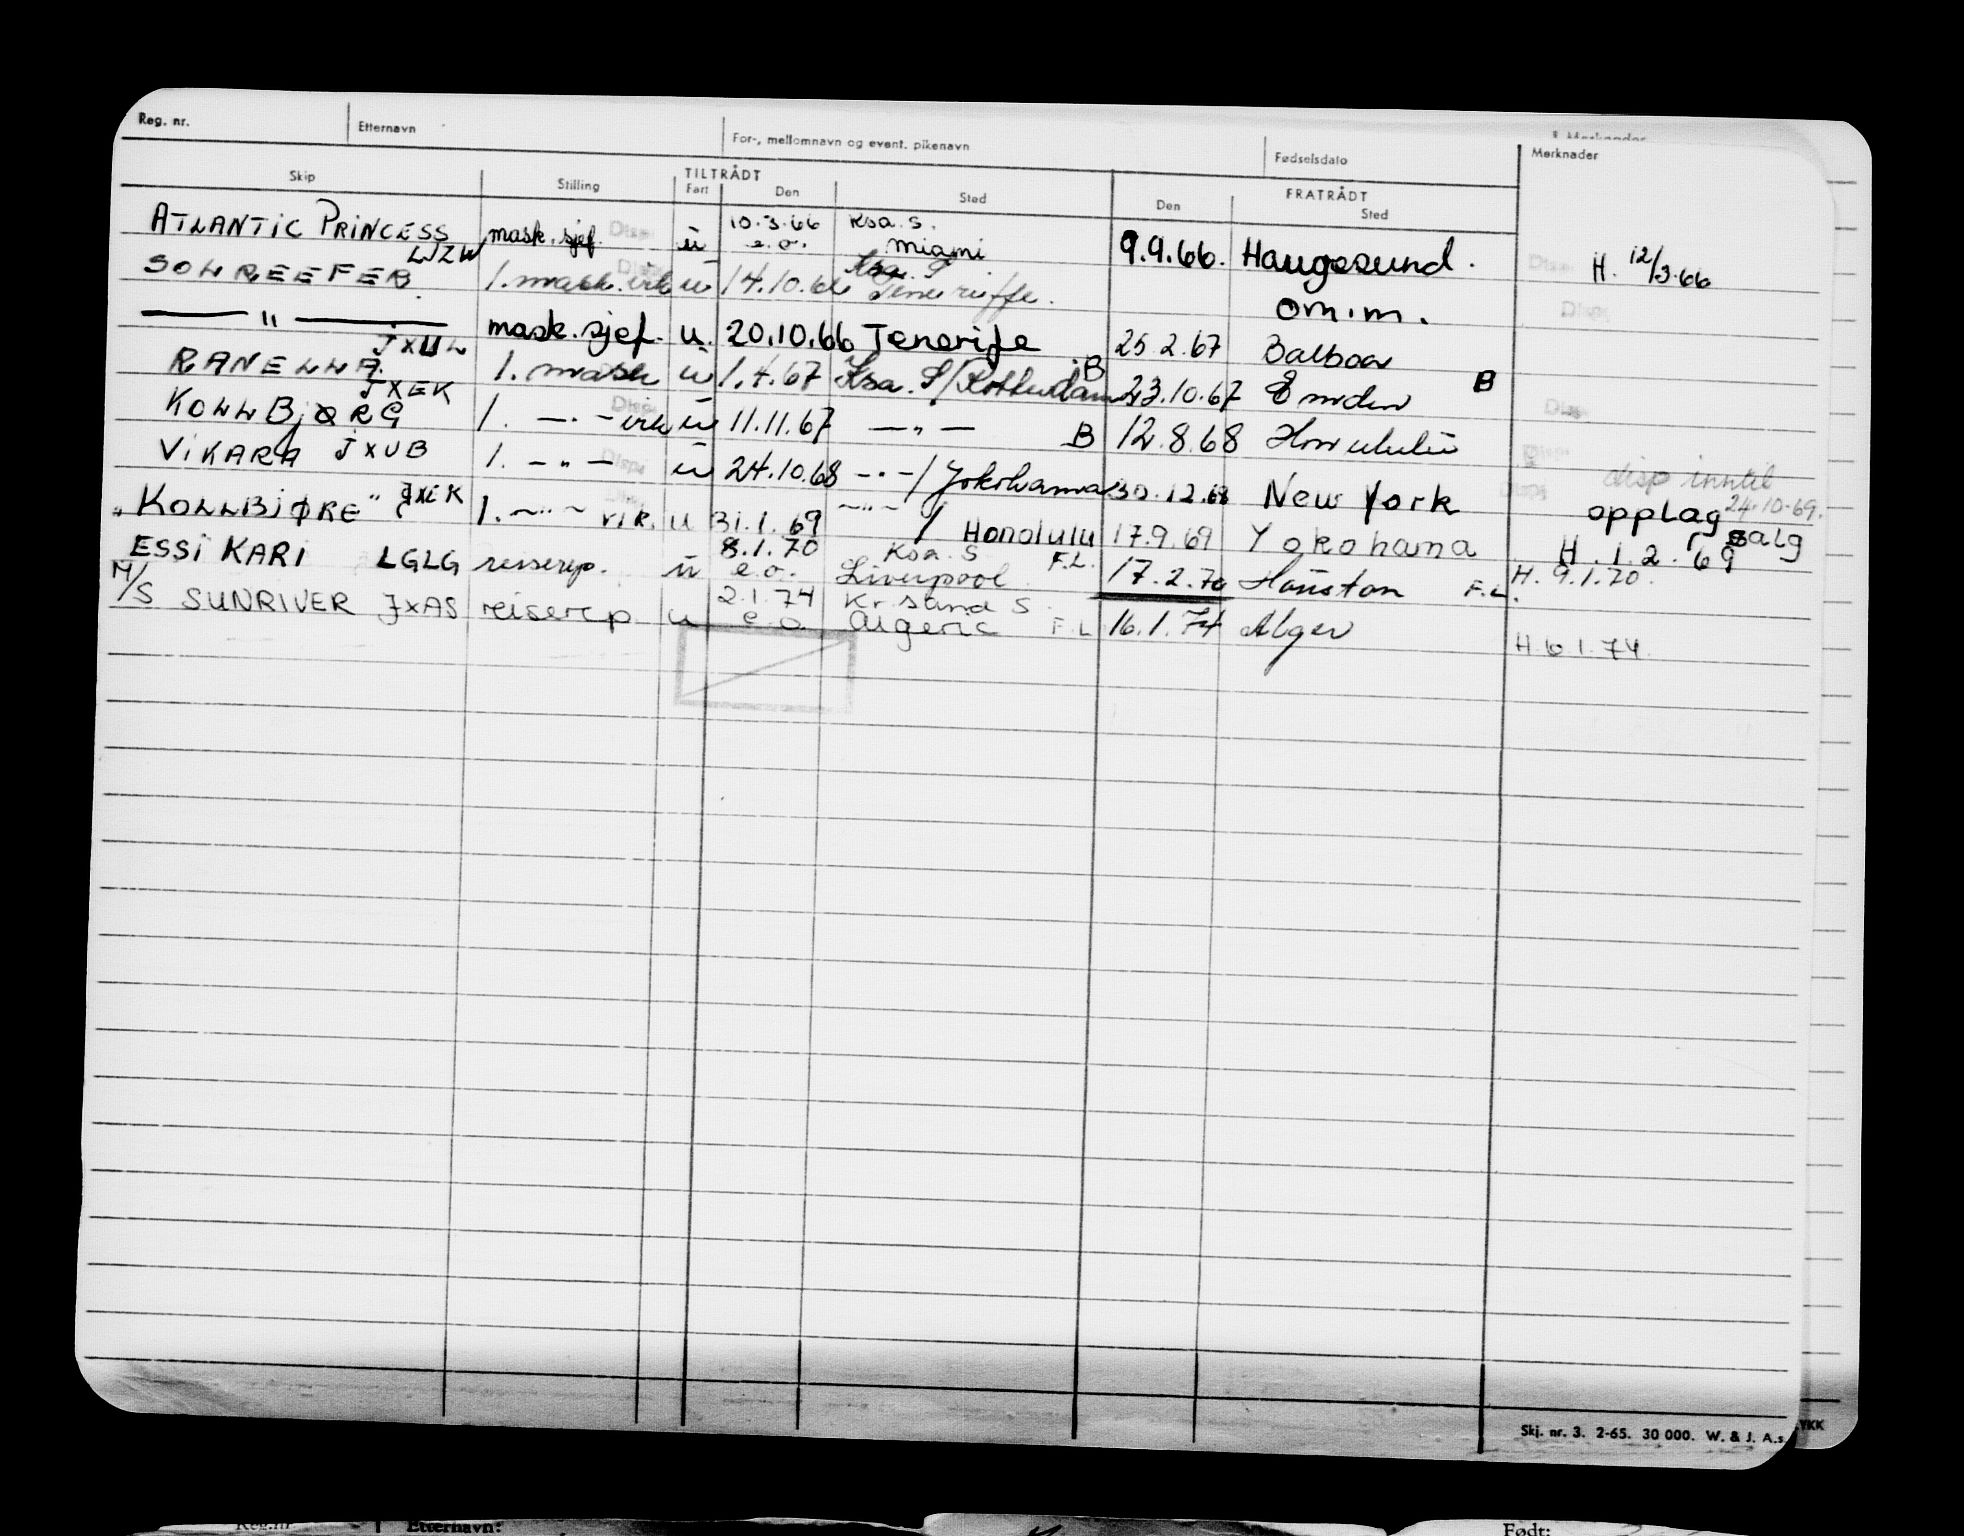 Reg. nr. Etternavn For-, mellomnavn og event. pikenavn Fødselsdato Merknader
Skip Stilling TILTRÅDT Fart Den Sted FRATRÅDT Den Sted
ATLANTIC PRINCESS mask. sjef. u 10.3.66 Ksa. S. 9.9.66. Haugesund. H. 12/3.66
LJZW e.o. Miami
SOLREEFER 1. mask. vik u 14.10.66 Ksa. S Teneriffe. om.m.
— " — mask. sjef. u. 20.10.66 Tenerife 25 2.67 Balboa
JXUL
RANELLA 1. mask u 1.4.67 Ksa. S/Rotterdam B 23.10.67 Emden B
JXEK
KOLLBJØRG 1. — . — vik u 11.11.67 — „ — B 12.8.68 Honolulu
VIKARA JXUB 1. — „ — u 24.10.68 — „ — / Yokohama 30.12.68 New York disp inntil 24.10.69.
opplag salg
"KOLLBJØRG" JXEK 1. — " — VIK. u 31.1.69 — " — / Honolulu 17.9.69 Yokohama H. 1.2.69
ESSI KARI LGLG reiserep. u 8.1.70 e.o. Ksa. S Liverpool F.L. 17.2.70 Houston F.L. H. 9.1.70.
M/S SUNRIVER JXAS reiserep u 2.1.74 e.o. Kr. sand S. Algeric F.L 16.1.74 Alger H. 6.1.74.
Skj. nr. 3. 2-65. 30 000. W. & J. A.s.
Reg.nr Etternavn: Født: